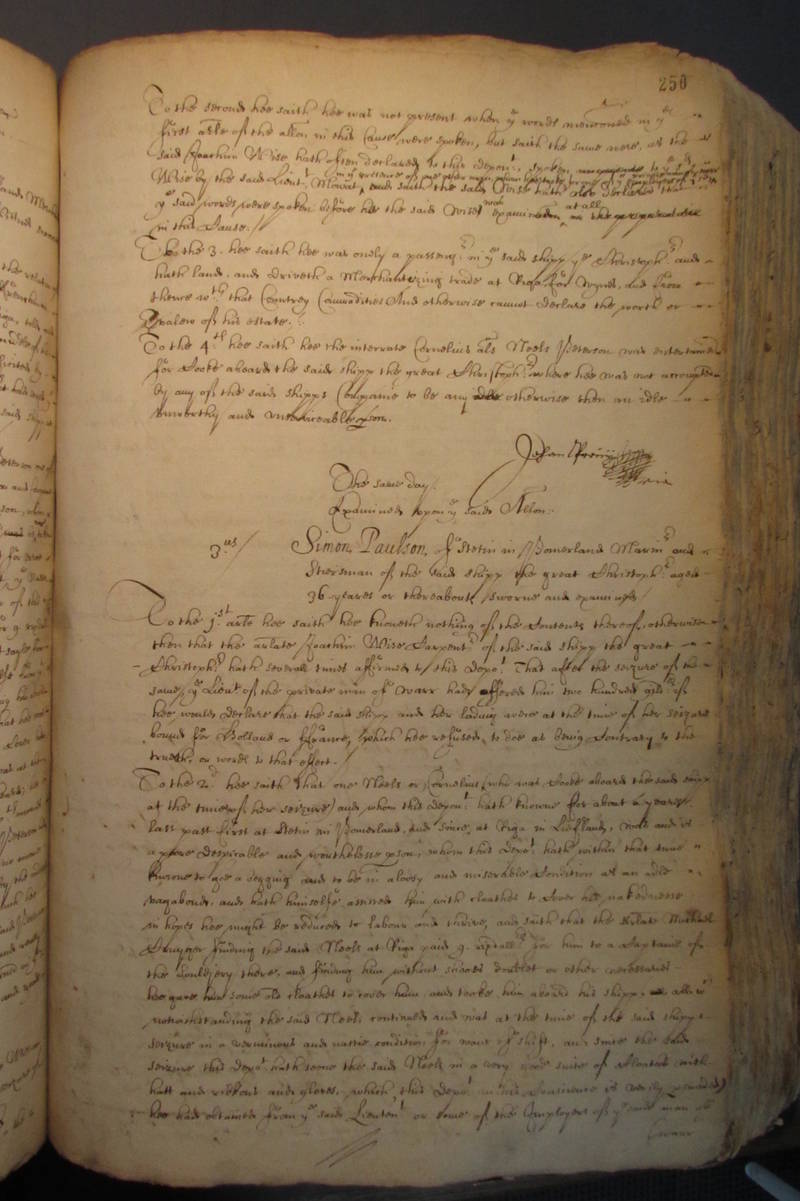 250
To the second hee saith hee was not present when ye words mencioned in ye
first arle of the allon in this Cause were spoken, but saith the same were, as the
said Joachim Wise hath often declared to this depont. spoken
Wise by the said Lieut. and saith the said Wise hath
ye said words were spoken before hee the said Wise was examined at all
in this Cause./
To the 3. hee saith hee was onely a passengr in ye said shipp ye Christophr and
hath land, and driveth a Merchantizing trade at Riga for Wynes, and from
thence wth that Countrey Commodities And otherwise cannot declare the worth or
valew of his estate.
To the 4th hee saith hee the interrate Cornelius als Neels Peterson was entertained
for Cooke aboard the said shipp the great Christophr where hee was not accompted
by any of the said shipps Companie to be any otherwise then an idle
unworthy and unserviceable pson.
Johan
The same day.
Examined upon ye said Allon.
3us/ Simon Paulson, of Stetin in Pomerland Marinr and
Stiersman of the said shipp the great Christophr aged
36 yeares or thereabouts sworne and examined
To the j.st arle hee saith hee knoweth nothing of the Contents thereof, otherwise
then that the arlate Joachim Wise Carpentr of the said shipp the great
Christophr hath severall times affirmed to this depot That after the seizure of the
same, ye Lieut of the private man of warr had offered him two hundred gilds if
hee would declare that the said shipp and her lading were at the time of her seizure
bound for Holland or ffrance, which hee refused to doe as being Contrary to the
trueth, or words to that effect.
To the 2d hee saith that one Neels or Cornelius (who was Cooke aboard the said shipp
at the time of her seizure) and whom this depont hath knowne for about 2 yeares
last past first at Stetin in Pomerland, and since, at Riga in Liefland, was and is
a poore despirable and worthelesse pson, whom this depot hath within that time
knowne to goe a begging and to be in a lowsy and miserable Condition as an idle
vagabond, and hath himselfe assisted him with cloathes to cover his nakednesse
in hopes hee might be reduced to labour and thrive, and saith that the arlate Michael
finding the said Neels at Riga paid 9. for him to a Captaine of
the Souldjery there, and finding him without shooes doublet or other necessaries
hee gave him some old cloathes to cover him, and tooke him aboard his shipp, all wch
notwithstanding the said Neels continued and was at the time of the said shipps
seizure in a verminous and nastie condition for want of shift, and since the said
seizure this depot hath seene the said Neels in a very good suite of cloaths with
hatt and ribbons and gloves, which this depot in his Conscience is verily perswaded
hee had obtained from ye said Lieutent or some of the Employers of ye said man of
warr